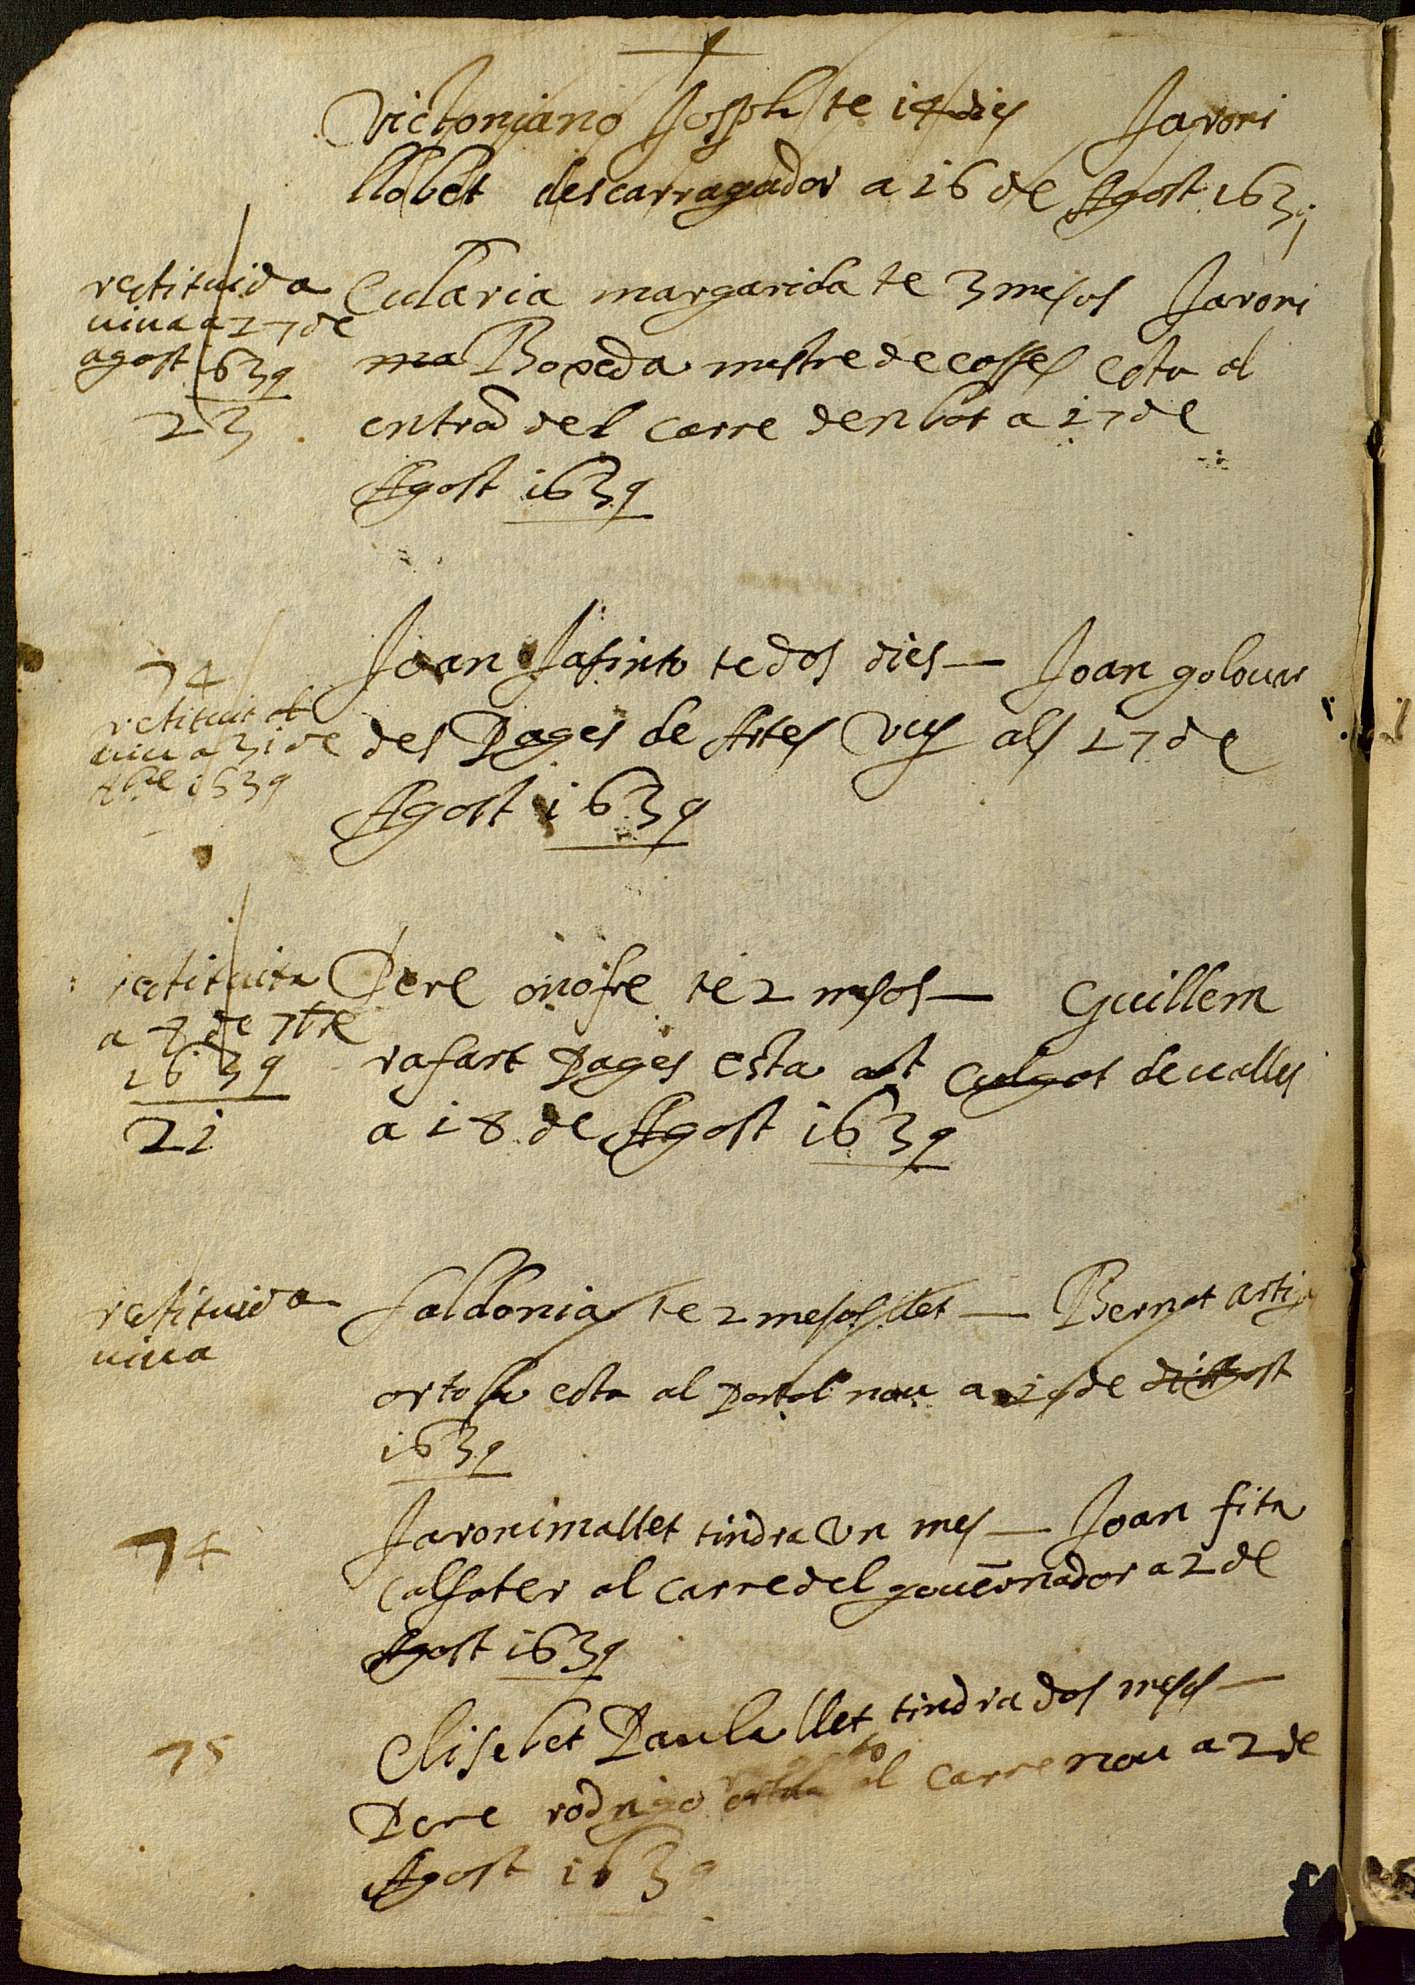 Victoriano Joseph te 14 dies Jaroni
llobet descarragador a 16 de Agost 1639
restituida
viva a 27 de
agost 1639
23
Eularia margarida te 3 mesos Jaroni
ma Boxeda mestre de cosses esta al
entrad del carre den bot a 17 de
Agost 1639
74
restituit
viu a 31 de
1639
Joan Jasinto te dos dies — Joan
des Pages de Artes Vuy als 17 de
Agost 1639
restituita
a 8 de 7bre
1639
21
Pere onofre te 2 mesos — Guillem
rafart Pages esta a st de valles
a 18 de Agost 1639
restituida
viva
saldonia te 2 mesos llet — Bernat
ortola esta al Portal nou a 19 de Agost
1639
74
Jaronima llet tindra Un mes — Joan fita
Calsater al carre del governador a 2 de
Agost 1639
75
Elisabet Paula llet tindra dos mesos —
Pere rodrigo al carre nou a 2 de
Agost 1639